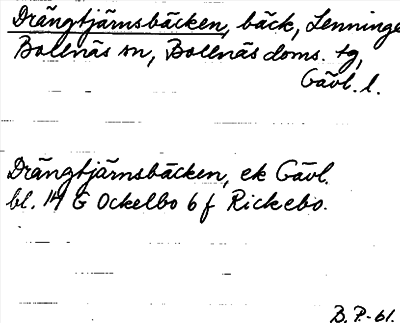 Drängtjärnsbäcken, bäck, Lenninge,
Bollnäs sn, Bollnäs doms. tg,
Gävl. l.
Drängtjärnsbäcken, ek Gävl.
bl. 14 G Ockelbo 6 f Rickebo.
B.P.-61.